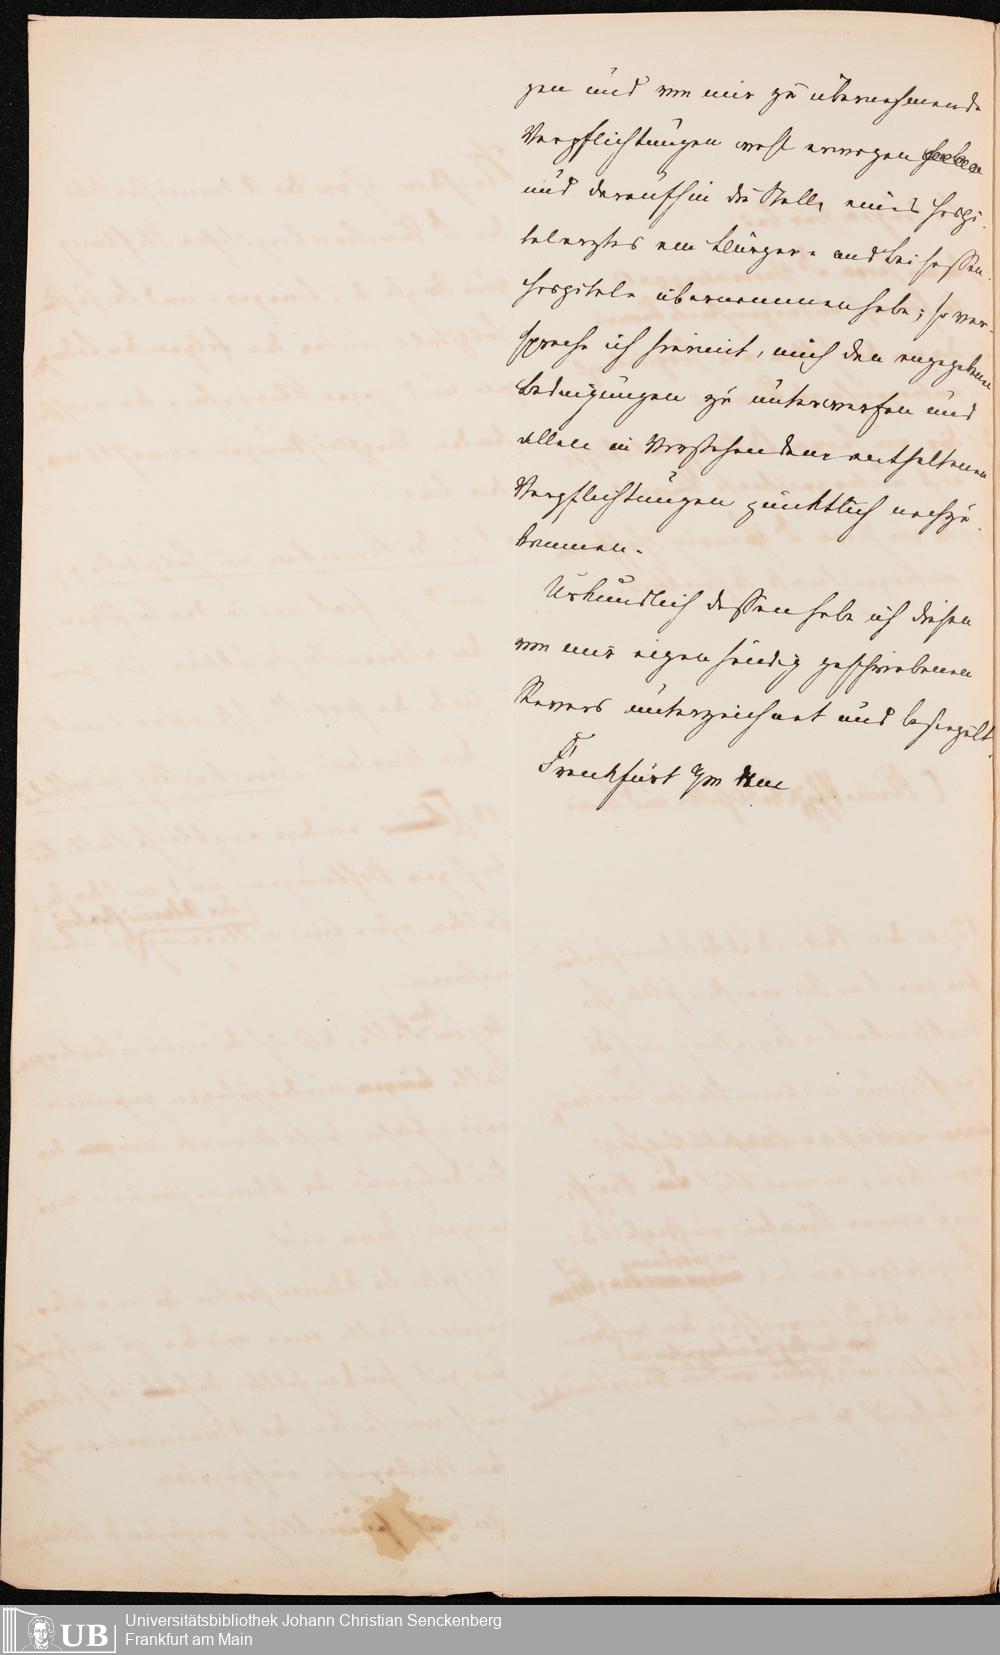 gen und von mir zu übernehmende
Verpflichtungen wohl erwogen
und daraufhin die Stelle eines Hospi-
talarztes am Bürger- und Beisassen-
hospitale übernommen habe; so ver-
spreche ich hiermit, mich den angegebenen
Bedingungen zu unterwerfen und
allen in Vorstehendem enthaltenen
Verpflichtungen pünktlich nachzu-
kommen.
Urkundlich dessen habe ich diesen
von mir eigenhändig geschriebenen
Revers unterzeichnet und besiegelt.
Frankfurt a/m den
UB
Universitätsbibliothek Johann Christian Senckenberg
Frankfurt am Main